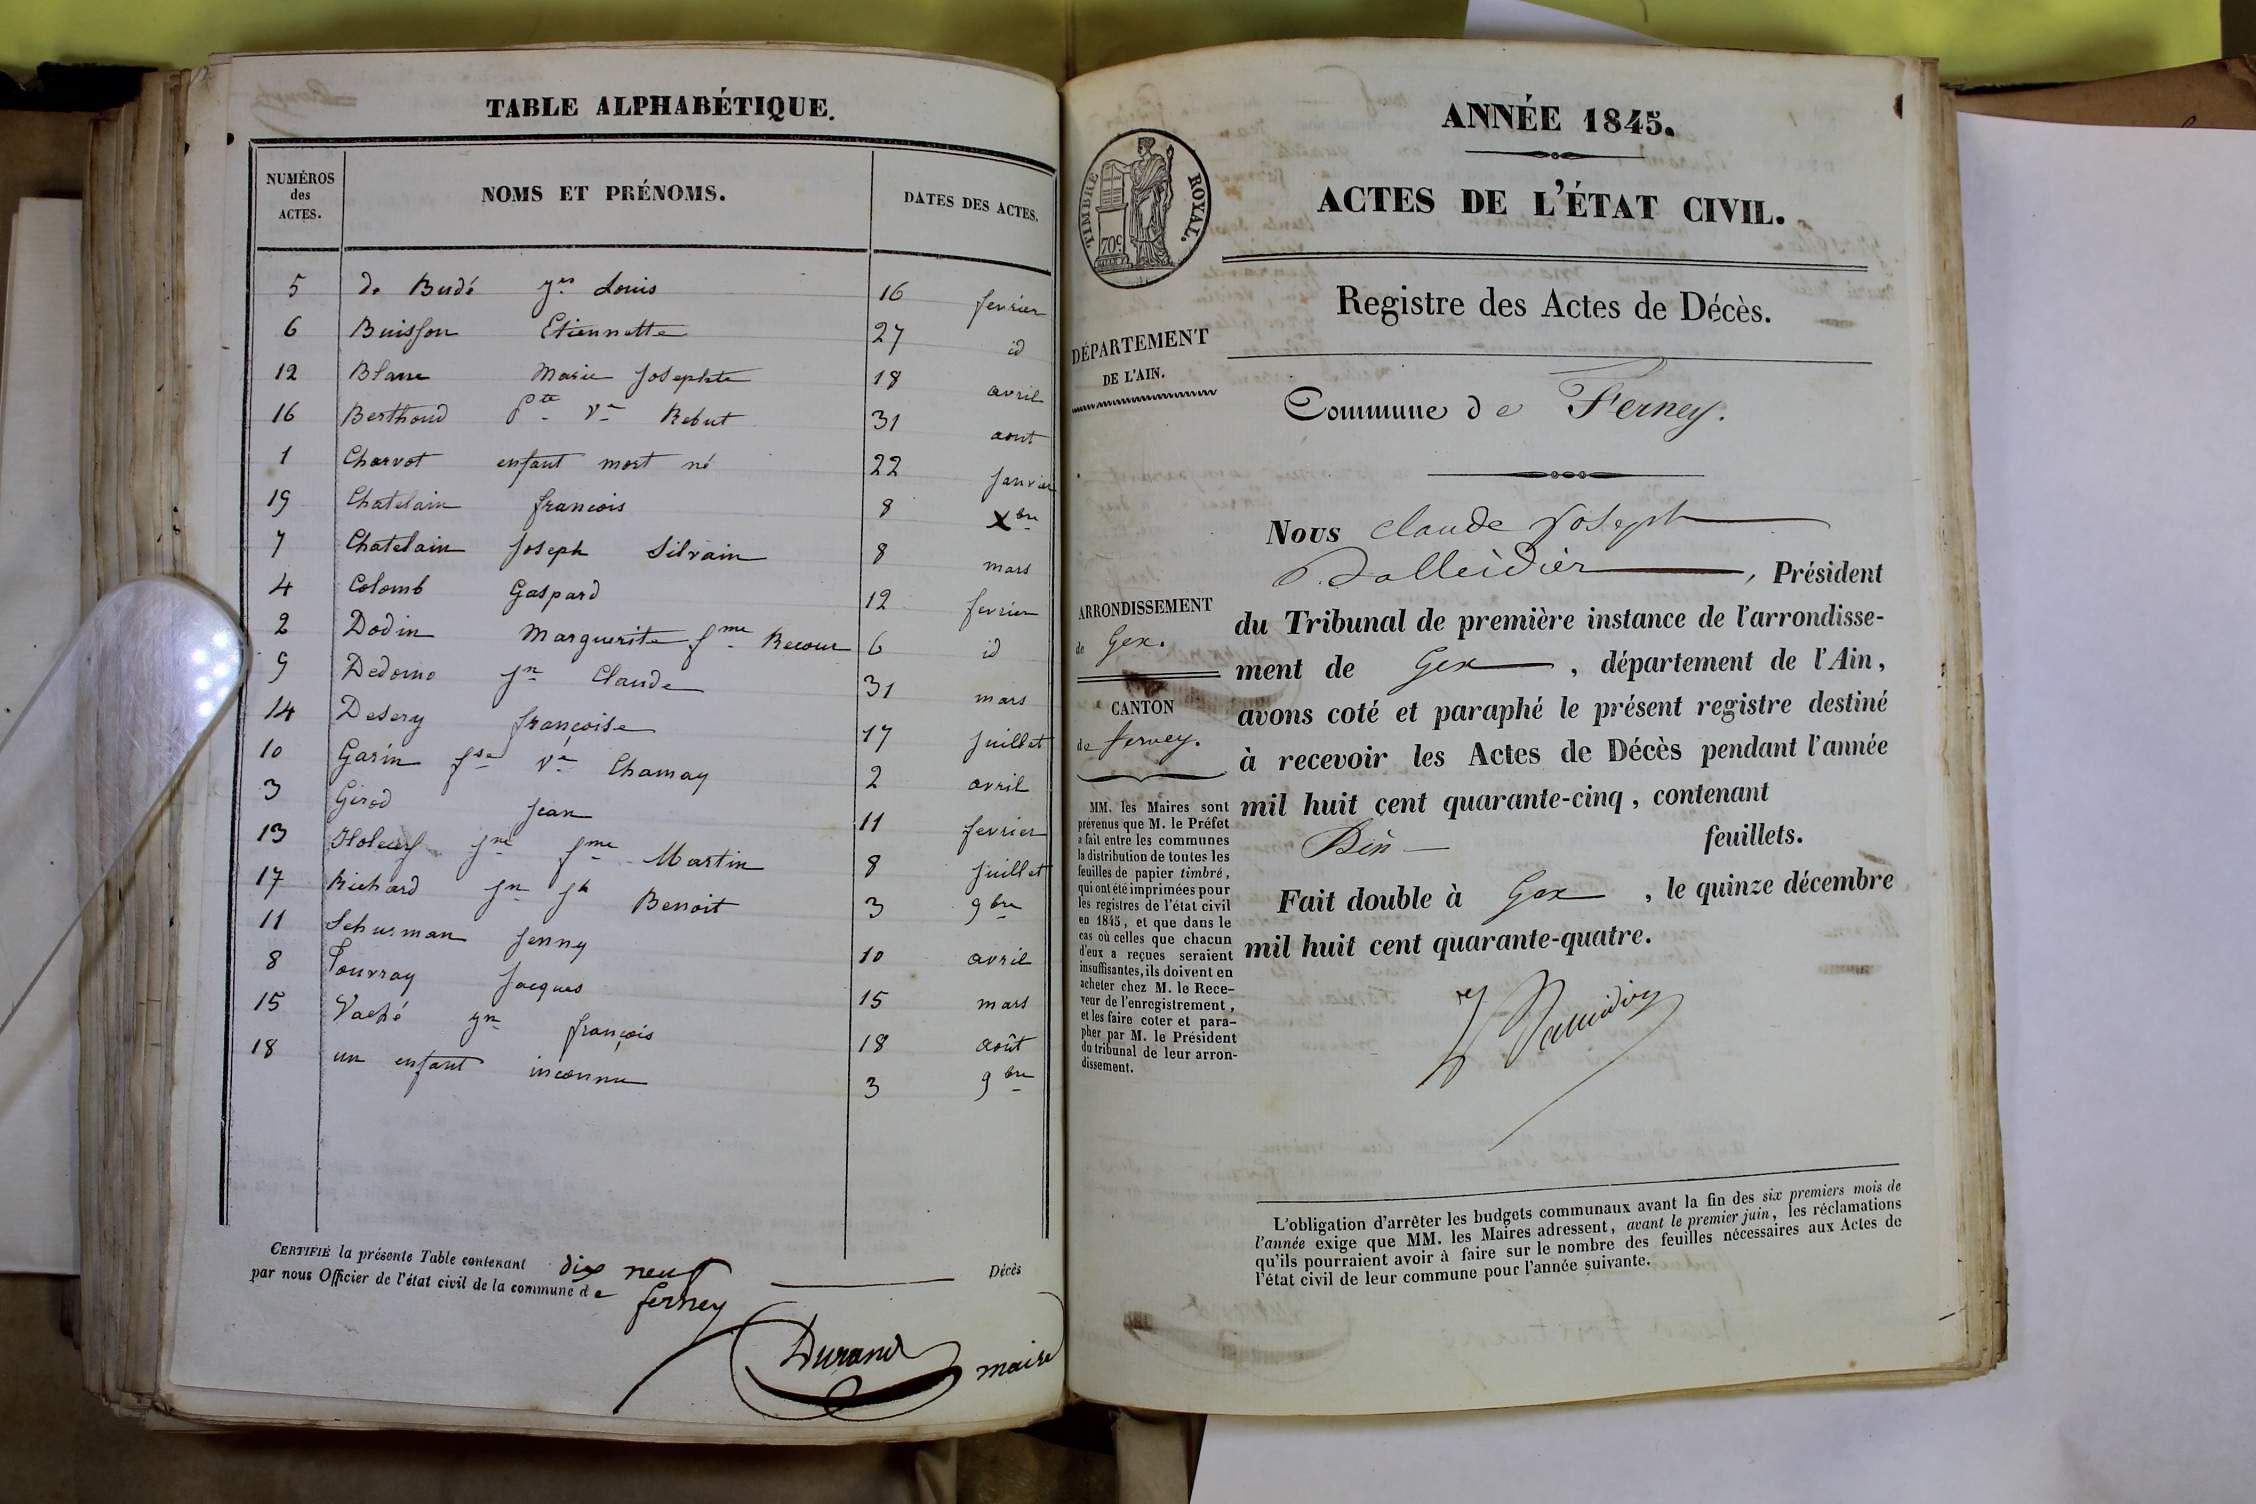 TABLE ALPHABÉTIQUE.
NUMÉROS des ACTES. NOMS ET PRÉNOMS. DATES DES ACTES.
5 de Budé Louis 16 fevrier
6 Buisson Etiennette 27 id
12 Blanc Marie Josephte 18 avril
16 Berthoud Pte Ve Rebut 31 aout
1 Charvot enfant mort né 22 Janvier
19 Chatelain françois 8 Xbre
7 Chatelain Joseph Silvain 8 mars
4 Colomb Gaspard 12 fevrier
2 Dodin Marguerite fme Recour 6 id
9 Dedomo Jn Claude 31 mars
14 Desery françoise 17 Juillet
10 Garin fse Ve Chamay 2 avril
3 Girod Jean 11 fevrier
13 Jne fme Martin 8 Juillet
17 Richard Jn Jh Benoit 3 9bre
11 Schurman Jenny 10 avril
8 Tourray Jacques 15 mars
15 Vaché françois 18 août
18 un enfant inconnu 3 9bre
CERTIFIÉ la présente Table contenant dix neuf Décès
par nous Officier de l'état civil de la commune de ferney
Durand maire
ANNÉE 1845.
TIMBRE ROYAL.
70c
ACTES DE L'ÉTAT CIVIL.
Registre des Actes de Décès.
DÉPARTEMENT
DE L'AIN.
Commune de Ferney.
ARRONDISSEMENT
de Gex.
CANTON
de ferney.
MM. les Maires sont
prévenus que M. le Préfet
a fait entre les communes
la distribution de toutes les
feuilles de papier timbré,
qui ont été imprimées pour
les registres de l'état civil
en 1845, et que dans le
cas où celles que chacun
d'eux a reçues seraient
insuffisantes, ils doivent en
acheter chez M. le Rece-
veur de l'enregistrement,
et les faire coter et para-
pher par M. le Président
du tribunal de leur arron-
dissement.
Nous Claude Joseph
, Président
du Tribunal de première instance de l'arrondisse-
ment de Gex, département de l'Ain,
avons coté et paraphé le présent registre destiné
à recevoir les Actes de Décès pendant l'année
mil huit cent quarante-cinq, contenant
feuillets.
Fait double à Gex, le quinze décembre
mil huit cent quarante-quatre.
L'obligation d'arrêter les budgets communaux avant la fin des six premiers mois de
l'année exige que MM. les Maires adressent, avant le premier juin, les réclamations
qu'ils pourraient avoir à faire sur le nombre des feuilles nécessaires aux Actes de
l'état civil de leur commune pour l'année suivante.